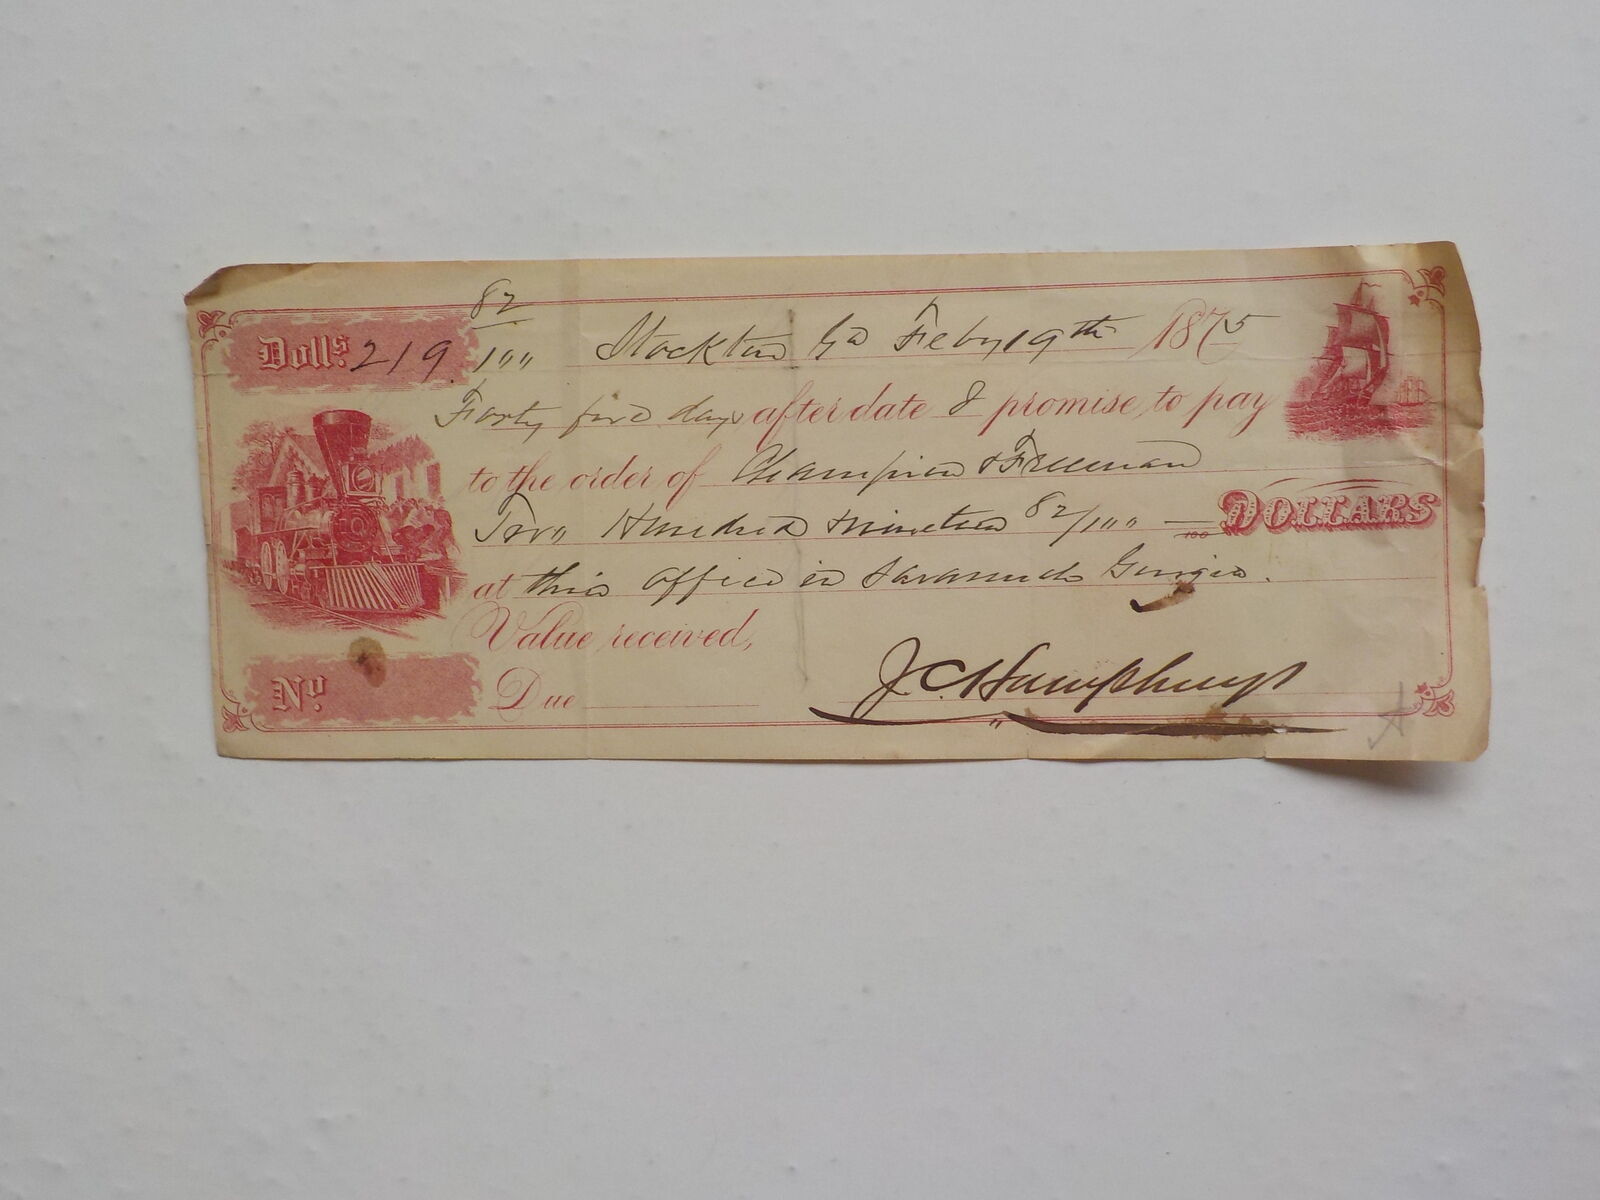 Dolls. 219 82/100 Stockton Ga Feby 19th 1875
Forty five days after date I promise to pay
to the order of Champion & Freeman
Two Hundred & nineteen 82/100 — 100 DOLLARS
at this office in Savannah Georgia.
Value received,
No. Due J C Humphreys